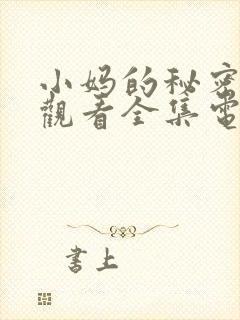 小妈的秘密
觀看全集電
書上